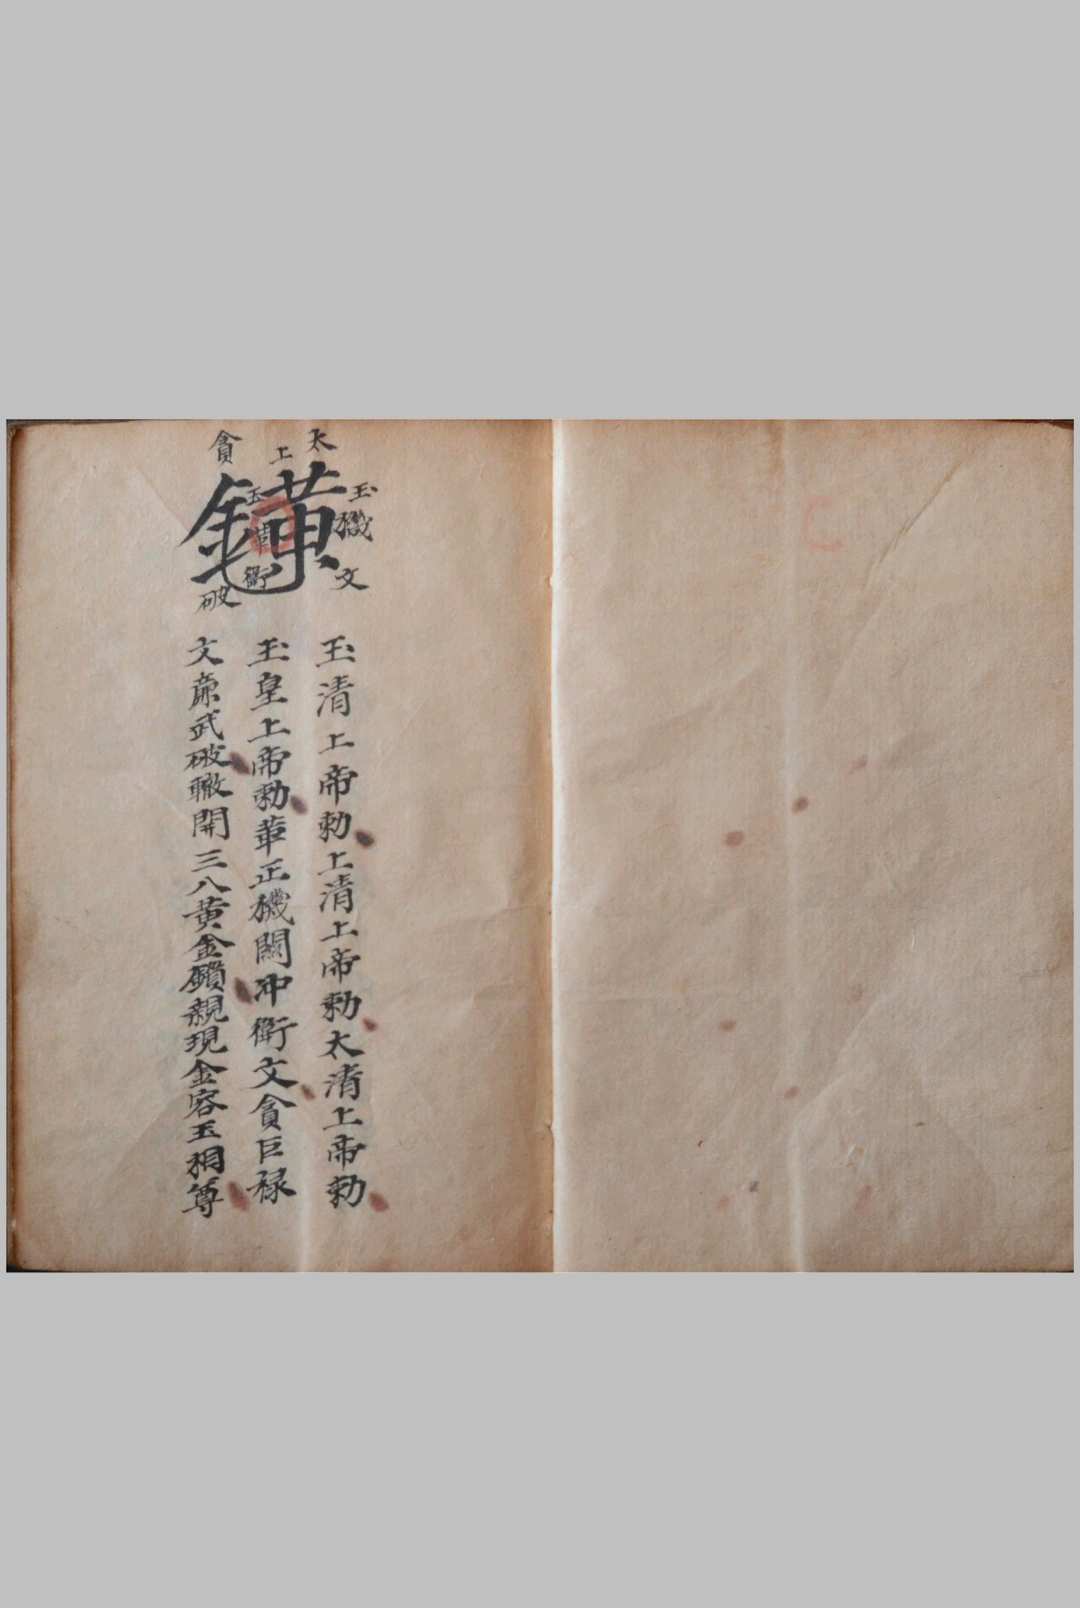 太上
玉機文
貪
破
玉
衝
玉清上帝勅上清上帝勅太清上帝勅
玉皇上帝勅華正機關冲衝文貪巨祿
文亷武破轍開三八黃金鎖親現金容玉相尊